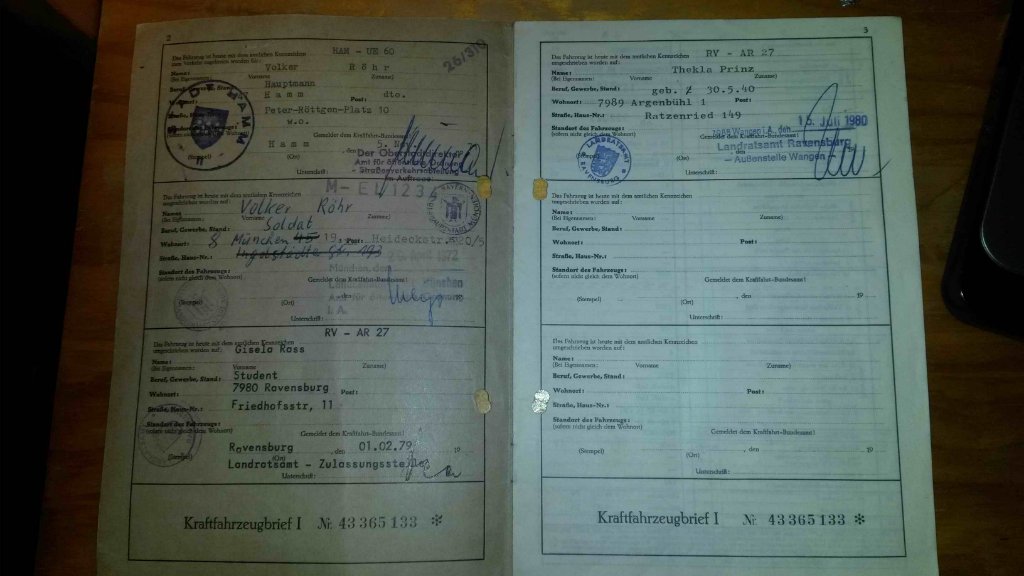 2
HAM - UE 60
26/310
Das Fahrzeug ist heute mit dem amtlichen Kennzeichen
zum Verkehr zugelassen worden für:
Volker Röhr
Name:
(Bei Eigennamen:) Vorname Zuname)
Hauptmann
Beruf, Gewerbe, Stand:
Hamm dto.
Wohnort: Post:
Peter-Röttgen-Platz 10
Straße, Haus-Nr.:
w.o.
Standort des Fahrzeugs:
(sofern nicht gleich dem Wohnort)
Gemeldet dem Kraftfahrt-Bundesamt
STADT HAMM
Hamm 5. Nov.
(Stempel) (Ort) , den
Der Oberstadtdirektor
Amt für öffentliche Ordnung
- Straßenverkehrsabteilung -
Im Auftrage:
Unterschrift:
M-EL 1234
Das Fahrzeug ist heute mit dem amtlichen Kennzeichen
umgeschrieben worden auf:
Volker Röhr
Name:
(Bei Eigennamen: Vorname Zuname)
Soldat
Beruf, Gewerbe, Stand:
8 München 45 19, Heideckstr. 20/5
Wohnort: Post:
Straße, Haus-Nr.:
1972
Standort des Fahrzeugs:
(sofern nicht gleich dem Wohnort)
Gemeldet dem Kraftfahrt-Bundesamt
München, den
München
(Stempel) (Ort) , den 19
I. A.
Unterschrift:
RV - AR 27
Das Fahrzeug ist heute mit dem amtlichen Kennzeichen
umgeschrieben worden auf:
Gisela Rass
Name:
(Bei Eigennamen: Vorname Zuname)
Student
Beruf, Gewerbe, Stand:
7980 Ravensburg
Wohnort: Post:
Friedhofsstr, 11
Straße, Haus-Nr.:
Standort des Fahrzeugs:
(sofern nicht gleich dem Wohnort)
Gemeldet dem Kraftfahrt-Bundesamt
Ravensburg , den 01.02.79 19
(Stempel) (Ort)
Landratsamt - Zulassungsstelle
Unterschrift:
Kraftfahrzeugbrief I Nr. 43 365 133 *
3
RV - AR 27
Das Fahrzeug ist heute mit dem amtlichen Kennzeichen
umgeschrieben worden auf:
Thekla Prinz
Name:
(Bei Eigennamen: Vorname Zuname)
geb. 30.5.40
Beruf, Gewerbe, Stand:
7989 Argenbühl 1
Wohnort: Post:
Ratzenried 149
Straße, Haus-Nr.:
Standort des Fahrzeugs:
(sofern nicht gleich dem Wohnort)
Gemeldet dem Kraftfahrt-Bundesamt
7988 Wangen i.A., den 15. Juli 1980
LANDRATSAMT
RAVENSBURG
Landratsamt Ravensburg
- Außenstelle Wangen -
(Stempel) (Ort)
Unterschrift:
Das Fahrzeug ist heute mit dem amtlichen Kennzeichen
umgeschrieben worden auf:
Name:
(Bei Eigennamen: Vorname Zuname)
Beruf, Gewerbe, Stand:
Wohnort: Post:
Straße, Haus-Nr.:
Standort des Fahrzeugs:
(sofern nicht gleich dem Wohnort)
Gemeldet dem Kraftfahrt-Bundesamt
, den 19
(Stempel) (Ort)
Unterschrift:
Das Fahrzeug ist heute mit dem amtlichen Kennzeichen
umgeschrieben worden auf:
Name:
(Bei Eigennamen: Vorname Zuname)
Beruf, Gewerbe, Stand:
Wohnort: Post:
Straße, Haus-Nr.:
Standort des Fahrzeugs:
(sofern nicht gleich dem Wohnort)
Gemeldet dem Kraftfahrt-Bundesamt
, den 19
(Stempel) (Ort)
Unterschrift:
Kraftfahrzeugbrief I Nr. 43 365 133 *